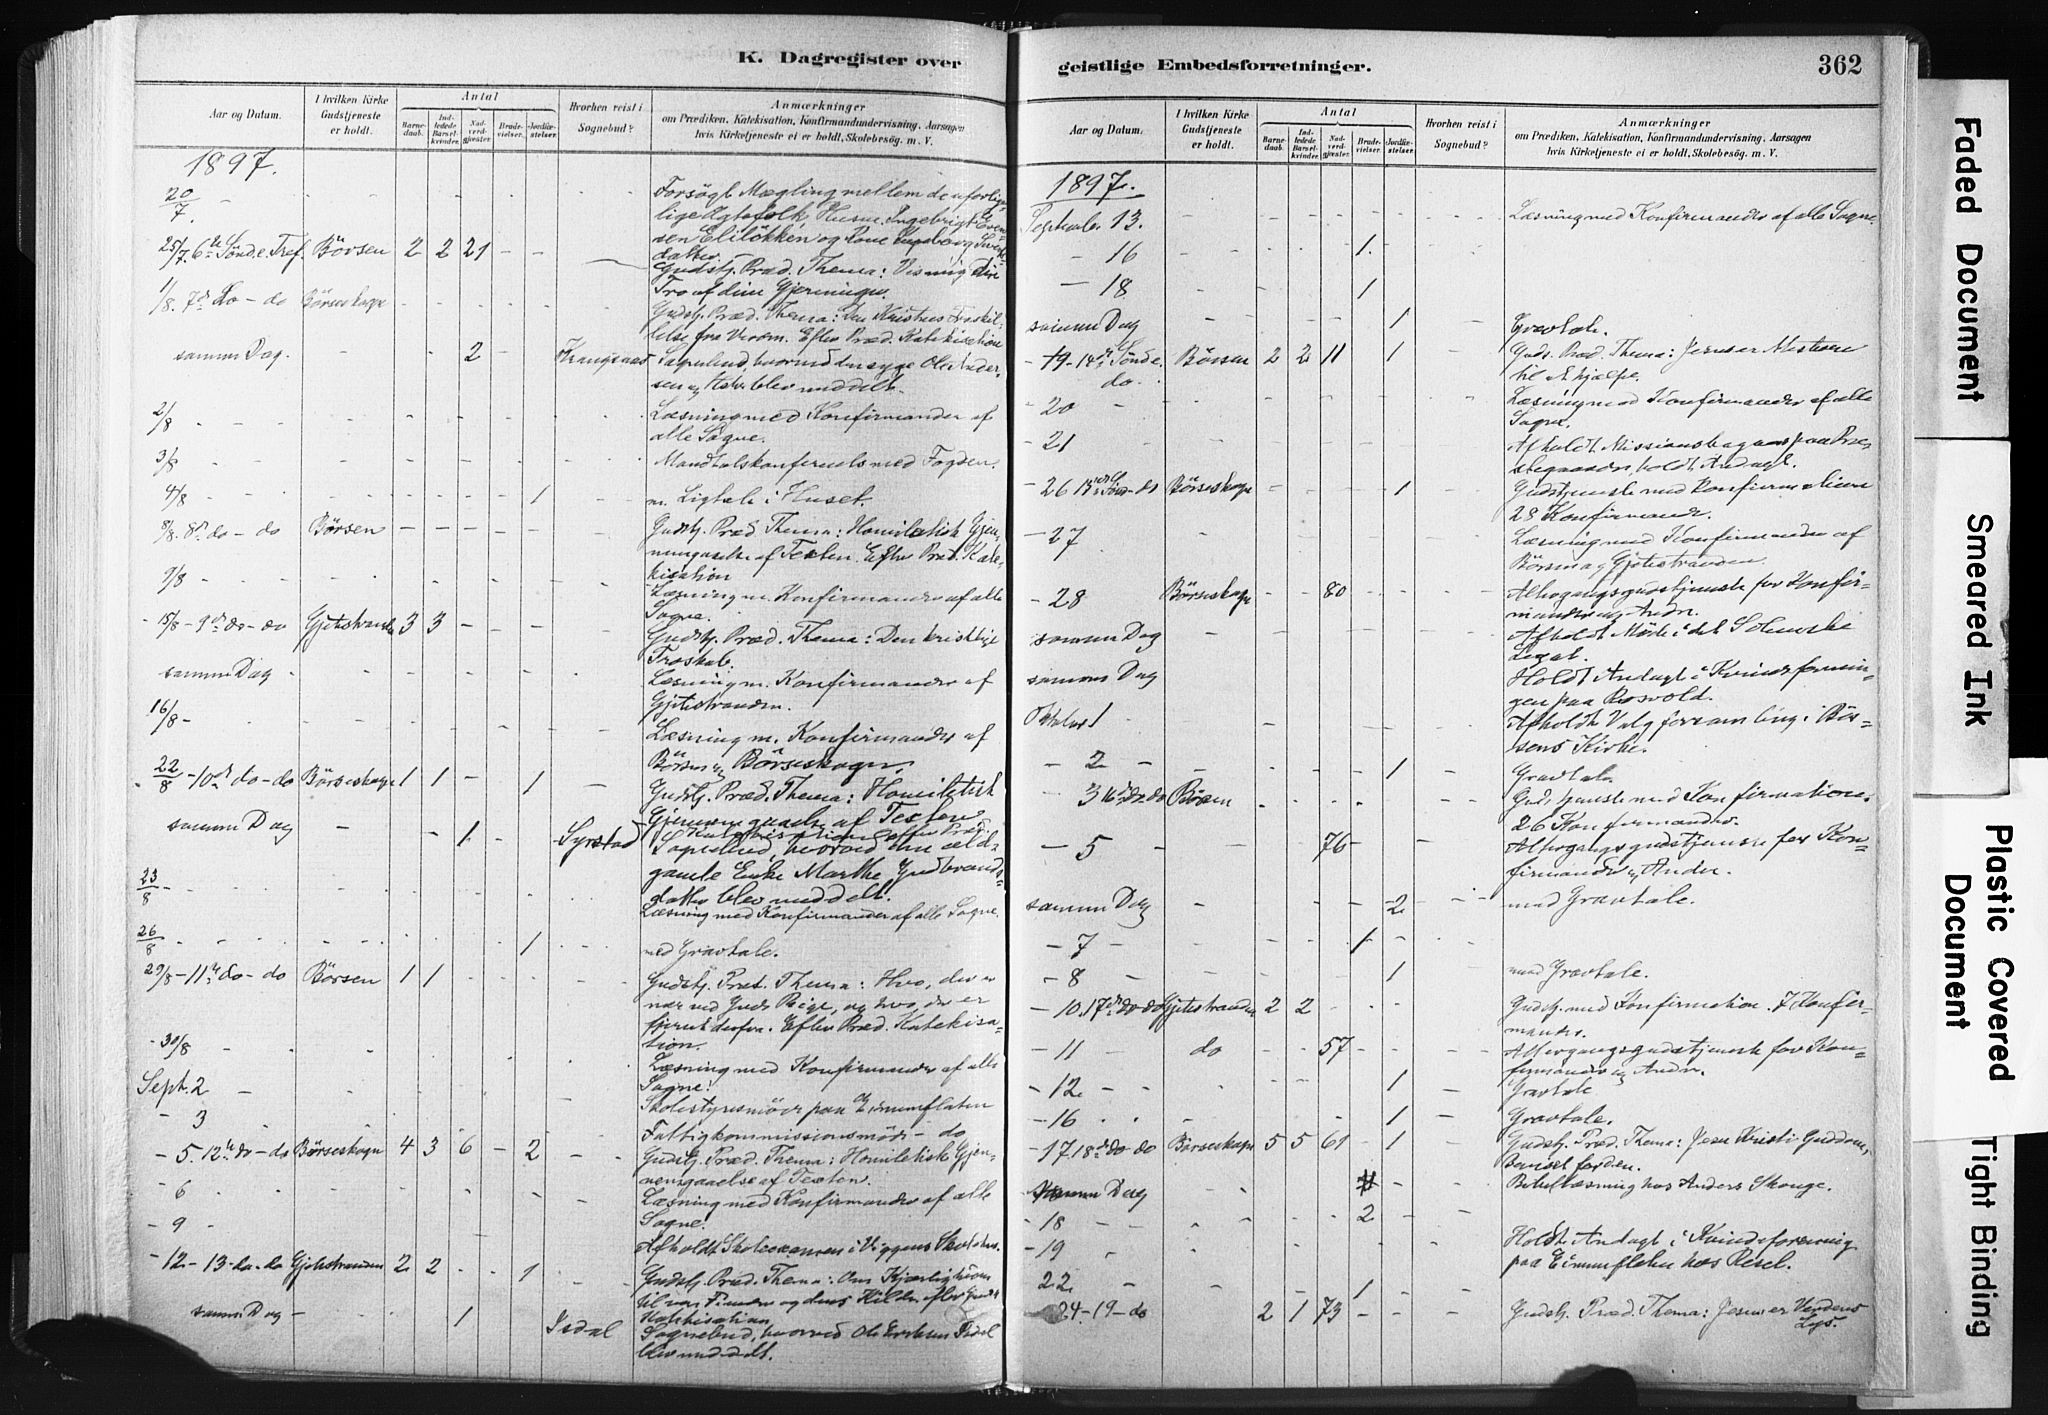 K. Dagregister over
Aar og Datum.
I hvilken Kirke Gudstjeneste er holdt.
Antal
Barnedaab.
Indledede Barselkvinder.
Nadverdgjester.
Brudevielser.
Jordfæstelser.
Hvorhen reist i Sognebud?
Anmærkninger
om Prædiken, Katekisation, Konfirmandundervisning, Aarsagen
hvis Kirketjeneste ei er holdt, Skolebesøg. m. V.
1897.
20/7. Forsøgt Mægling mellem de uforlige-
lige Ægtefolk, Husm. Ingebrigt
sen Eliløkken og Kone Ingeborg
datter.
25/7. 6te Sønd. e. Tref. Børsen 2 2 21 - -
Gudstj. Præd. Thema: Vis mig din
Tro af dine Gjerninger.
1/8. 7de do - do Børseskogn
Gudstj. Præd. Thema: Den Kristnes Forskil-
lelse fra Verden. Efter Præd. Katekisation
samme Dag. 2 - Krangsaas Sognebud, hvorved den syge Ole Ander-
sen blev meddelt.
2/8 Læsning med Konfirmander af
alle Sogne.
3/8 Mandtalskonferents med Fogden.
4/8 1 m. Ligtale i Huset.
8/8. 8de do - do Børsen - - - -
Gudstj. Præd. Thema: Homiletisk Gjen-
nemgaaelse af Texten. Efter Præd. Kate-
kisation
9/8 Læsning m. Konfirmander af alle
Sogne.
15/8 - 9de do - do Gjetestranden 3 3 - - -
Gudstj. Præd. Thema: Den kristelige
Troskab.
samme Dag Læsning m. Konfirmander af
Gjetestranden.
16/8 - Læsning m. Konfirmander af
Børsen og Børseskogn.
22/8 - 10de do - do Børseskogn 1 1 - - 1
Gudstj. Præd. Thema: Homiletisk
Gjennemgaaelse af Texten
Katekisation efter Præd.
samme Dag - 1 - Syrstad Sognebud, hvorved den æld-
gamle Enke Marthe Gudbrands-
datter blev meddelt.
23/8 - Læsning med Konfirmander af alle Sogne.
26/8 1 med Gravtale.
29/8 - 11te do - do Børsen 1 1
Gudstj. Præd. Thema: Hvo, der er
nær ved Guds Rige, og hvo, der er
fjernt derfra. Efter Præd. Katekisa-
tion.
- 30/8 Læsning med Konfirmander af alle
Sogne.
Sept. 2 - Skolestyresmøde paa Eimumflaten
- 3 Fattigkommissionsmøde - do
- 5. 12te do - do Børseskogn 4 3 6 - 2
Gudstj. Præd. Thema: Homiletisk Gjen-
nemgaaelse af Texten.
- 6 Læsning med Konfirmander af alle
Sogne.
- 9 - Afholdt Skoleexamen i Viggens Skolehus.
- 12 - 13 - do - do Gjetestranden 2 2 - - 1
Gudstj. Præd. Thema: Om Kjærligheden
til vor Fiender og dens Kilde. efter Gudstj.
Katekisation
samme Dag - 1 Isdal Sognebud, hvorved Ole Isdal
blev meddelt.
geistlige Embedsforretninger.
362
Aar og Datum.
I hvilken Kirke Gudstjeneste er holdt.
Antal
Barnedaab.
Indledede Barselkvinder.
Nadverdgjester.
Brudevielser.
Jordfæstelser.
Hvorhen reist i Sognebud?
Anmærkninger
om Prædiken, Katekisation, Konfirmandundervisning, Aarsagen
hvis Kirketjeneste ei er holdt, Skolebesøg. m. V.
1897.
September 13. Læsning med Konfirmander af alle Sogne.
- 16 1.
- 18 1
samme Dag 1 Gravtale.
- 19 - 14de Sønd e. do. Børsen 2 2 11 - 1
Guds. Præd. Thema: Jesus er Mesteren
til at hjælpe.
- 20 - Læsning med Konfirmander af alle
Sogne.
- 21 Afholdt Missionsbazar paa Præ-
stegaarden, holdt Andagt.
- 26 15de Sønd - do Børseskogn - - - - 1
Gudstjeneste med Konfirmation
28 Konfirmander.
- 27 Læsning med Konfirmander af
Børsen og Gjetestranden.
- 28 Børseskogn - - 80 - -
Altergangsgudstjeneste for Konfir-
mander og Andre.
samme Dag Afholdt Møde i det
Legat.
samme Dag Holdt Andagt i Kvindeforenin-
gen paa Rosvold.
Oktober 1 Afholdt Valgforsamling i Bør-
sens Kirke.
- 2 - 1 Gravtale.
- 3 16de do. do Børsen
Gudstjeneste med Konfirmation.
26 Konfirmander.
- 5 - 76 Altergangsgudstjeneste for Kon-
firmander og Andre.
samme Dag - 2 med Gravtale.
- 7 - 1
- 8 - 1 med Gravtale.
- 10. 17de do - do Gjetestranden 2 2
Gudstj. med Konfirmation. 7 Konfir-
mander.
- 11 do 57 Altergangsgudstjeneste for Kon-
firmander og Andre.
- 12. 1 Gravtale
- 16 1 Gravtale.
- 17. 18de do - do Børseskogn 5 5 61 - 1
Gudstj. Præd. Thema: Jesu Kristi Guddom,
Beviset for den.
samme Dag Bibellæsning hos Anders Skonge.
- 18 2
- 19 Holdt Andagt i Kvindeforening
paa Eimumflaten hos Resel.
22. 1
24 - 19 - do 2 1 73
Gudstj. Præd. Thema: Jesus er Verdens
Lys.
Faded Document
Smeared Ink
Plastic Covered Document
Tight Binding